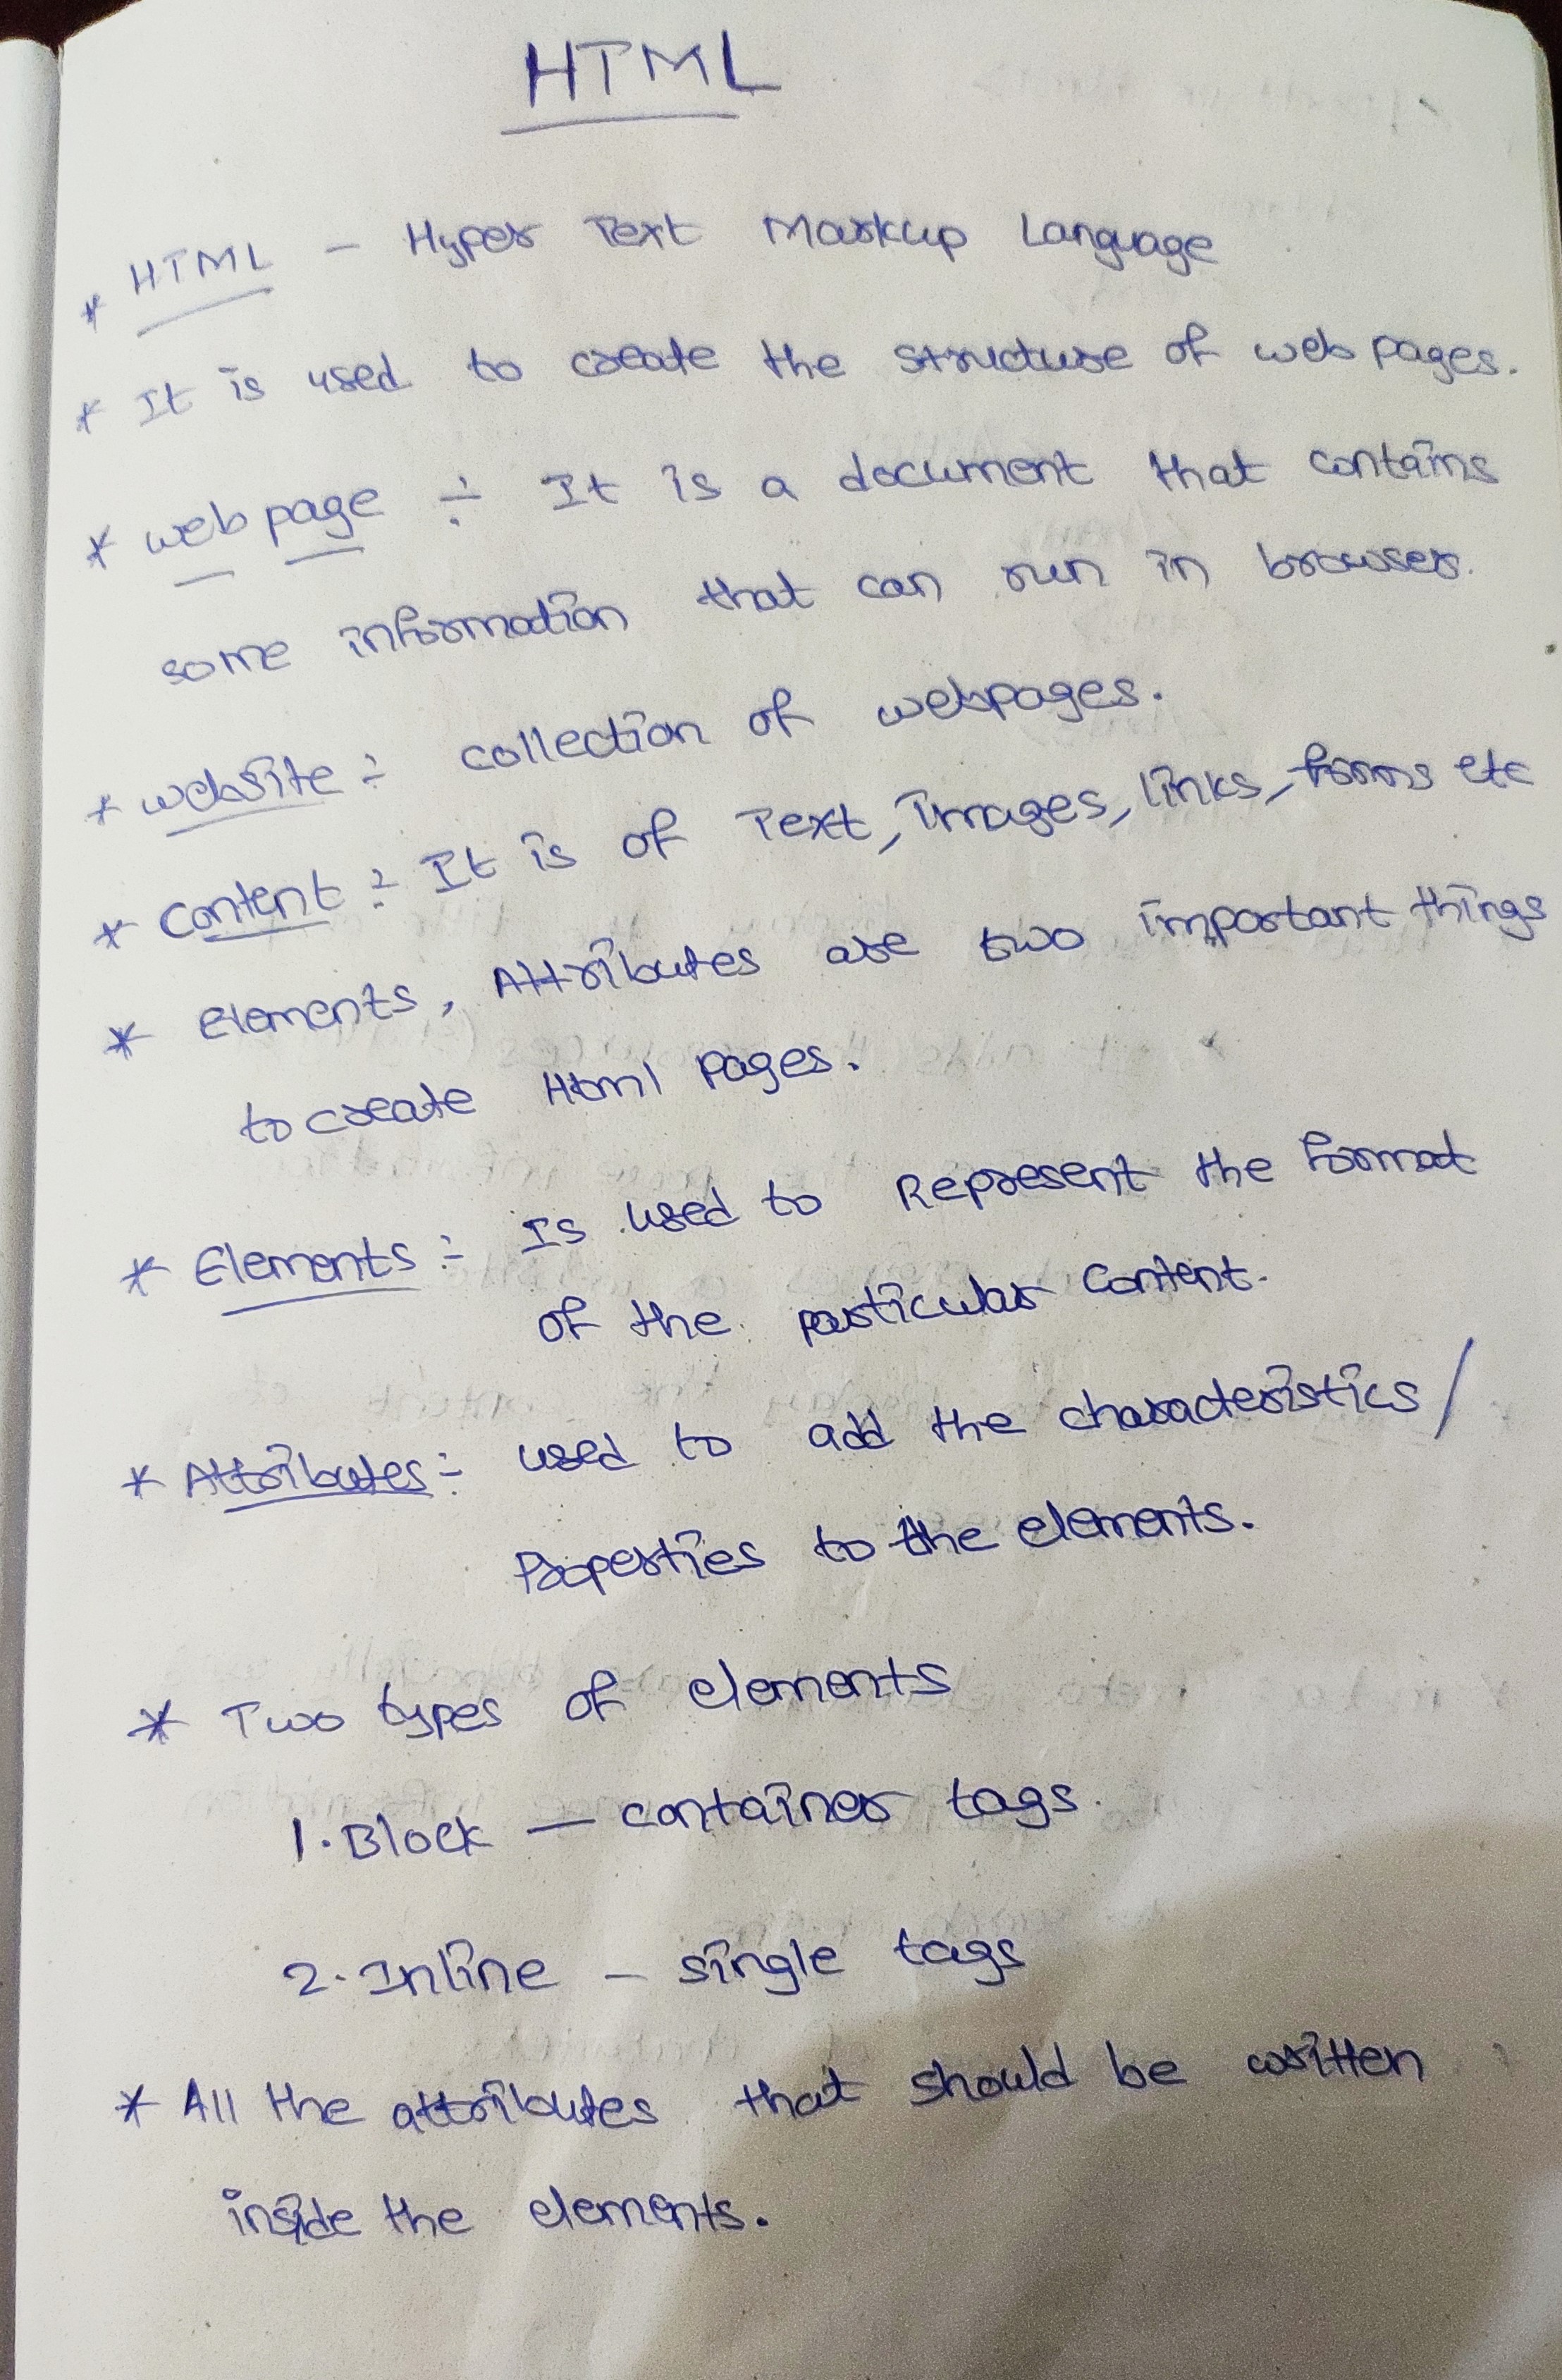 HTML
* HTML - Hyper Text Markup Language
* It is used to create the structure of web pages.
* web page ÷ It is a document that contains
some information that can run in browser.
* website ÷ collection of webpages.
* content ÷ It is of Text, images, links, forms etc
* Elements, Attributes are two important things
to create Html pages.
* Elements ÷ Is used to Represent the format
of the particular content.
* Attributes ÷ used to add the characteristics/
Properties to the elements.
* Two types of elements
1. Block - container tags.
2. Inline - single tags
* All the attributes that should be written
inside the elements.